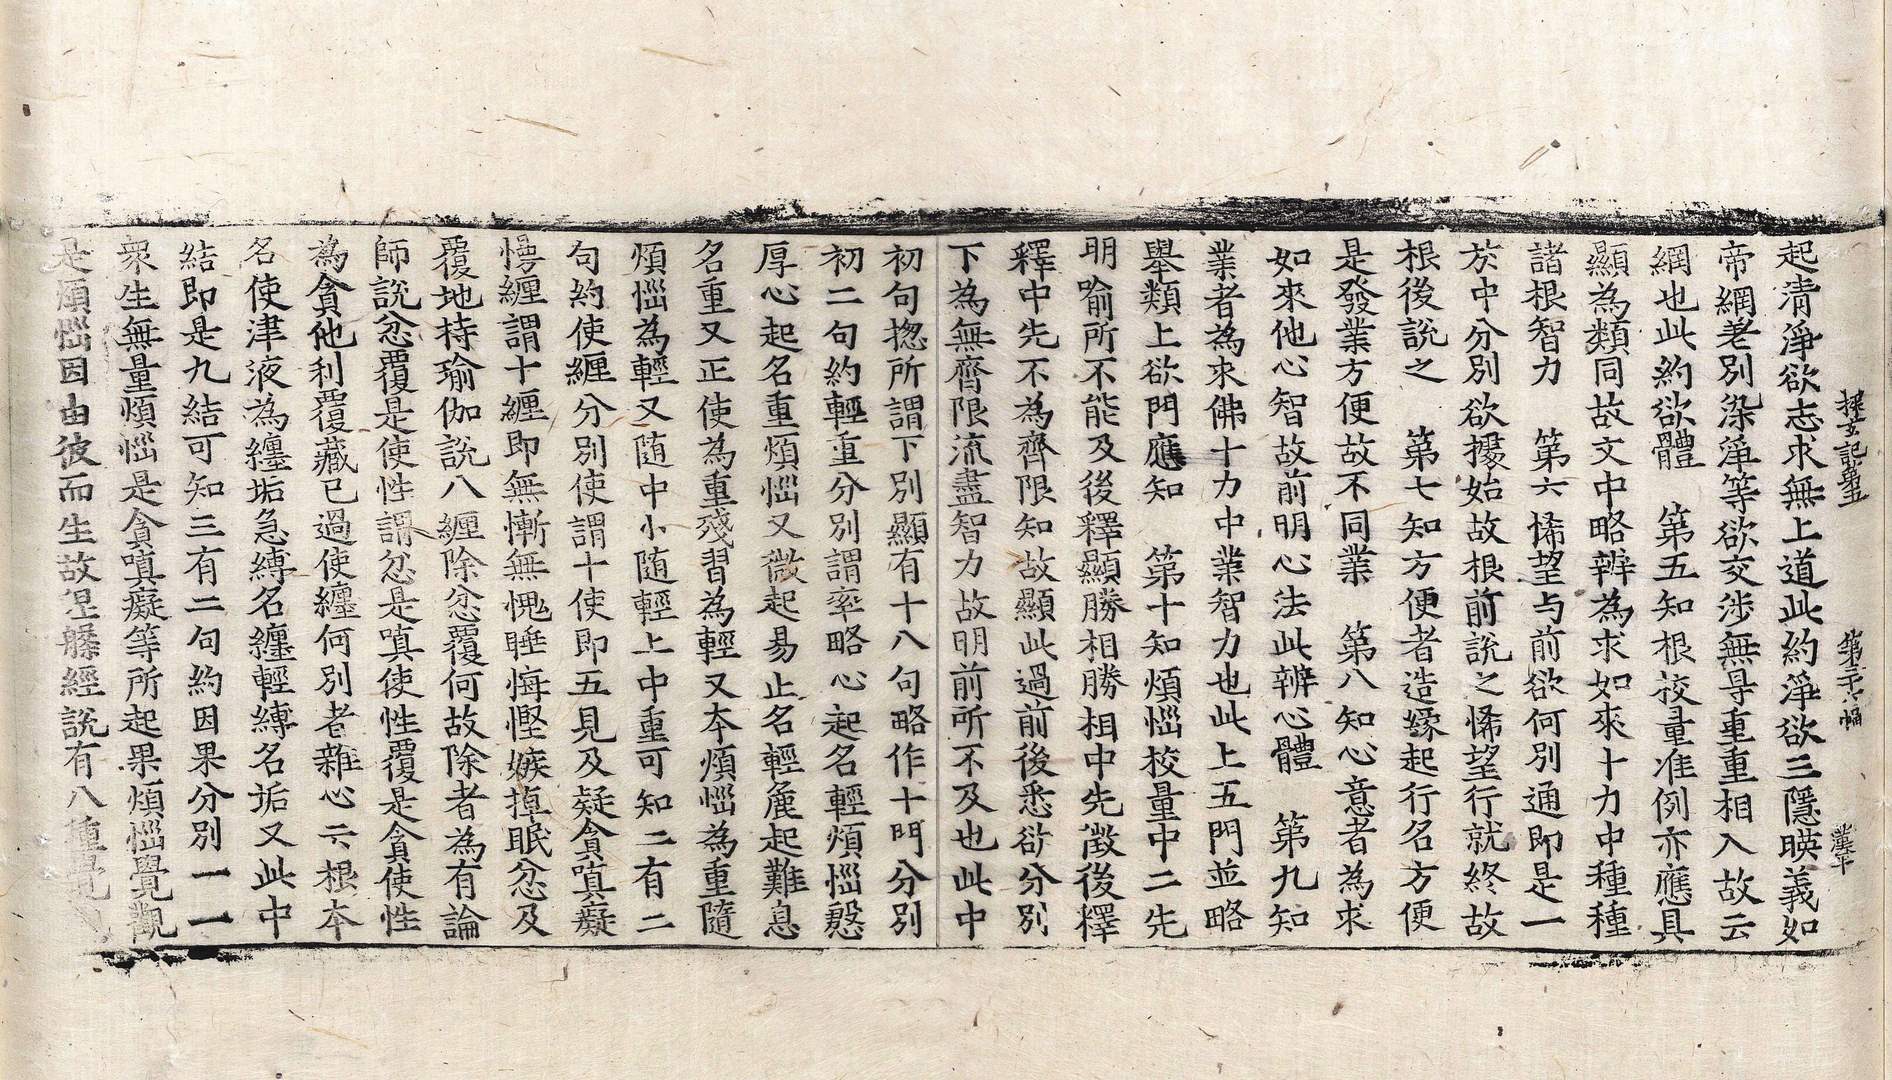 探玄記第五　第三十六幅　漢平
起清淨欲志求無上道此約淨欲三隱暎義如
帝網差別染淨等欲交涉無㝵重重相入故云
網也此約欲體　第五知根挍量准例亦應具
顯為類同故文中略辨為求如來十力中種種
諸根智力　第六悕望与前欲何別通即是一
於中分別欲據始故根前說之悕望行就終故
根後說之　第七知方便者造緣起行名方便
是發業方便故不同業　第八知心意者為求
如來他心智故前明心法此辨心體　第九知
業者為求佛十力中業智力也此上五門並略
舉類上欲門應知　第十知煩惱校量中二先
明喻所不能及後釋顯勝相勝相中先徵後釋
釋中先不為齊限知故顯此過前後悉欲分別
下為無齊限流盡智力故明前所不及也此中
初句揔所謂下別顯有十八句略作十門分別
初二句約輕重分別謂率略心起名輕煩惱慇
厚心起名重煩惱又微起易止名輕麁起難息
名重又正使為重殘習為輕又本煩惱為重隨
煩惱為輕又隨中小隨輕上中重可知二有二
句約使纏分別使謂十使即五見及疑貪嗔癡
慢纏謂十纏即無慚無愧睡悔慳嫉掉眠忿及
覆地持瑜伽說八纏除忿覆何故除者為有論
師說忿覆是使性謂忿是嗔使性覆是貪使性
為貪他利覆藏已過使纏何別者雜心云根本
名使津液為纏垢急縛名纏輕縛名垢又此中
結即是九結可知三有二句約因果分別一一
衆生無量煩惱是貪嗔癡等所起果煩惱覺觀
是煩惱因由彼而生故涅槃經說有八種覺